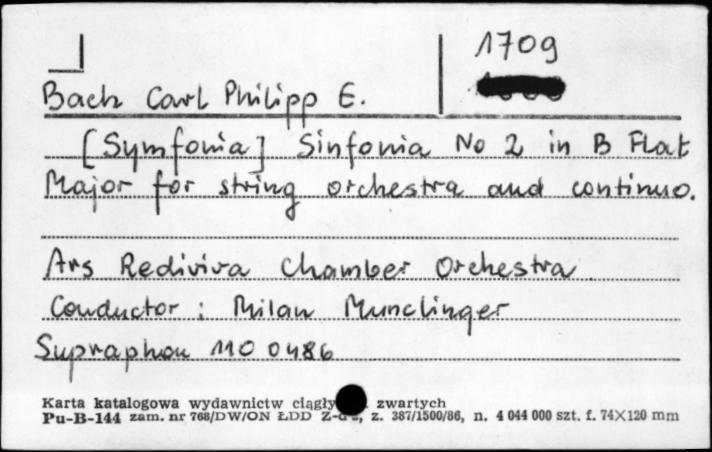 1709
Bach Carl Philipp E.
[Symfonia] Sinfonia No 2 in B Flat
Major for string orchestra and continuo.
Ars Rediviva Chamber Orchestra
Conductor: Milan Munclinger
Supraphon 110 0486
Karta katalogowa wydawnictw zwartych
Pu-B-144 zam. nr 768/DW/ON ŁDD z. 387/1500/86, n. 4 044 000 szt. f. 74X120 mm